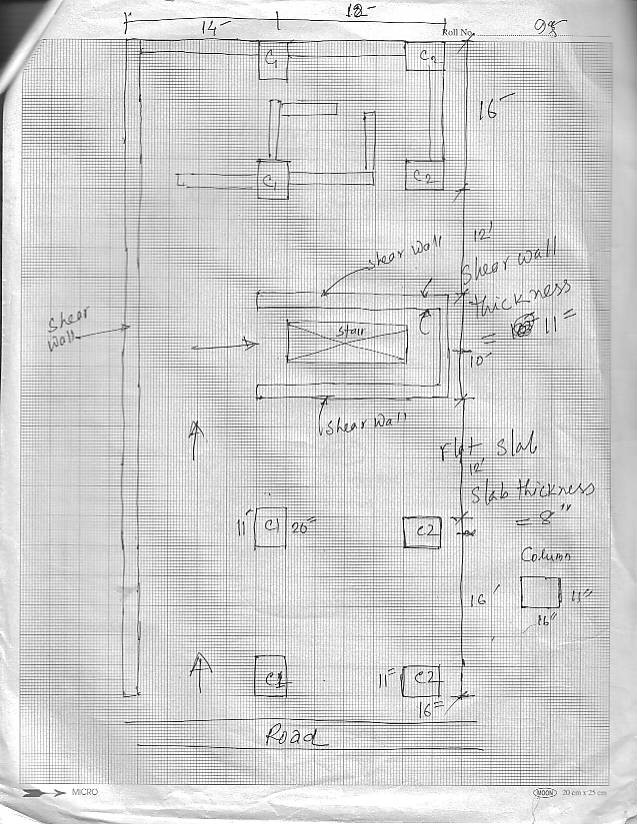 12-
14-
Roll No.
C1
C2
16-
C1
C2
12'
shear wall
Shear wall
thickness
= 11=
Shear
wall
stair
C
10-
shear wall
Flat slab
12'
Slab thickness
= 8"
11"
C1
20=
C2
Column
11"
16"
16'
C1
11=
C2
16=
Road
MICRO
MOON
20 cm x 25 cm